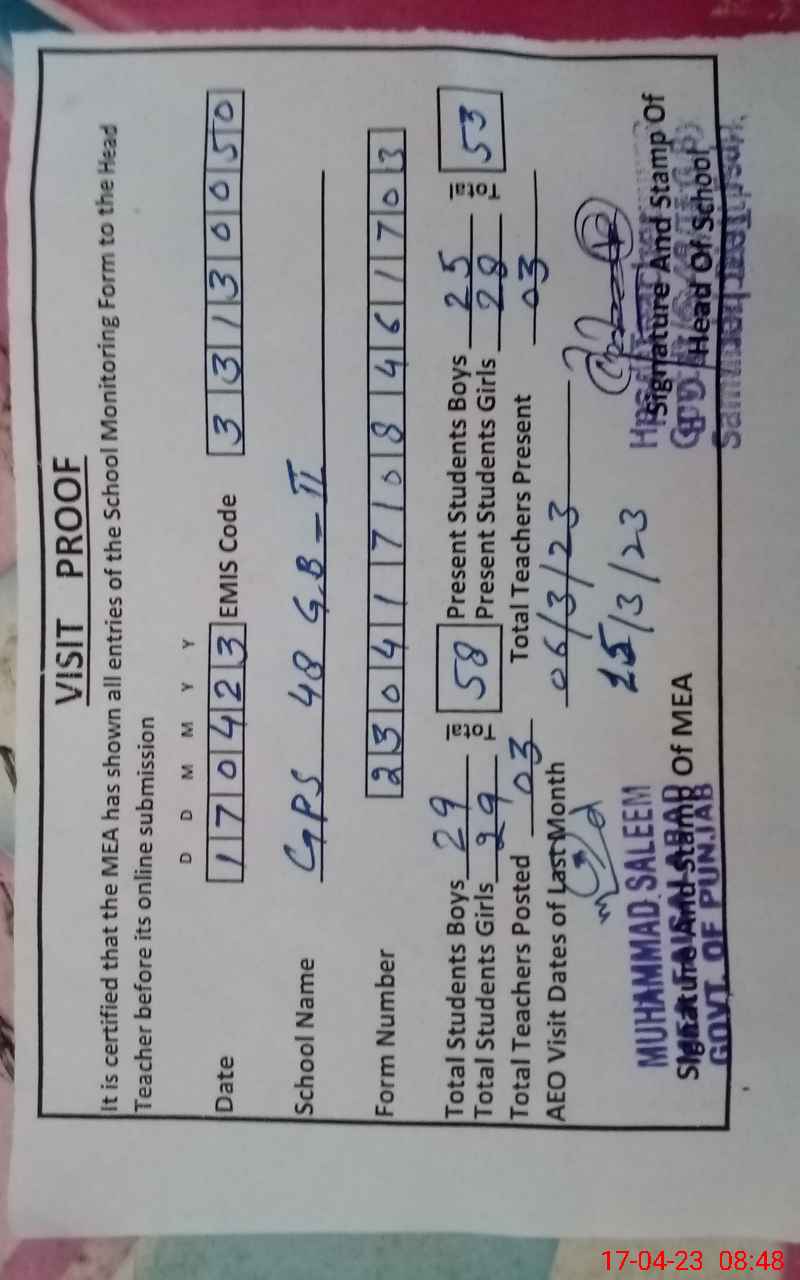 VISIT PROOF
It is certified that the MEA has shown all entries of the School Monitoring Form to the Head
Teacher before its online submission
D D M M Y Y
Date 170423 EMIS Code 33130050
School Name GPS 48 GB-II
Form Number 230417108461703
Total Students Boys 29 Total 58 Present Students Boys 25 Total 53
Total Students Girls 29 Present Students Girls 28
Total Teachers Posted 03 Total Teachers Present 03
AEO Visit Dates of Last Month 06/3/23
15/3/23
MUHAMMAD SALEEM
Signature And Stamp Of MEA
FAISALABAD
GOVT. OF PUNJAB
Signature And Stamp Of
Head Of School
17-04-23 08:48